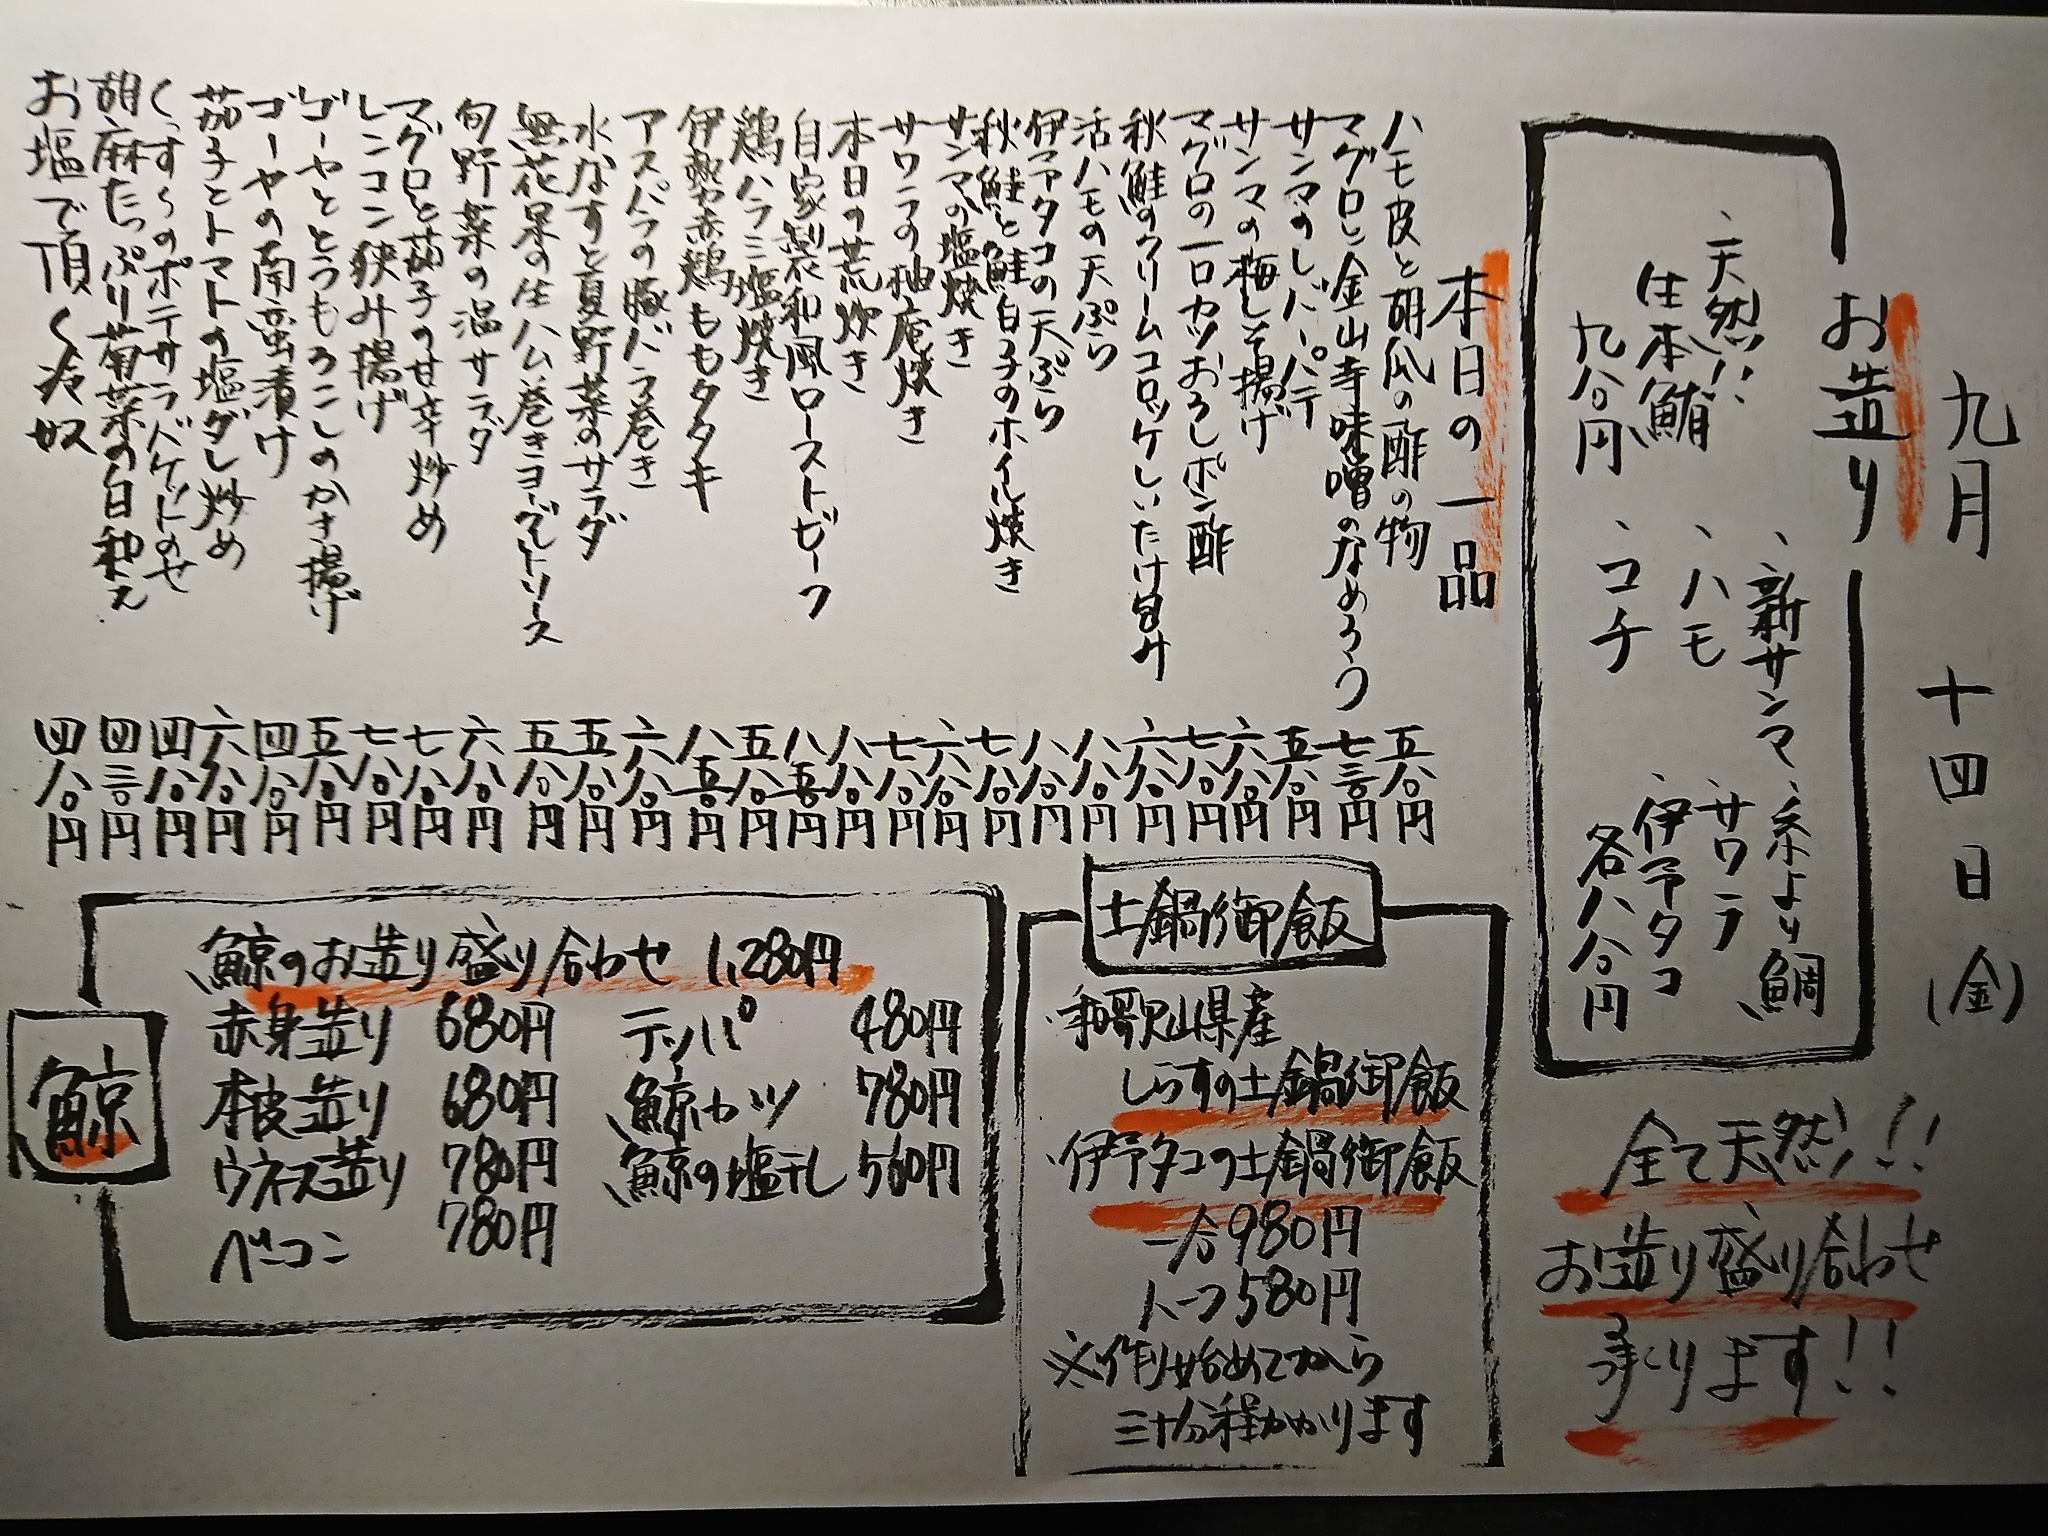 九月 十四日(金)
お造り
、天然!!
生本鮪
九八〇円
、新サンマ
、ハモ
、コチ
、糸より鯛
、サワラ
、伊予タコ
各八八〇円
全て天然!!
お造り盛り合わせ
承ります!!
本日の一品
ハモ皮と胡瓜の酢の物 五八〇円
マグロと金山寺味噌のなめろう 七三〇円
サンマのレバーパテ 五八〇円
サンマの梅しそ揚げ 六八〇円
マグロの一口カツおろしポン酢 七八〇円
秋鮭のクリームコロッケしいたけ包み 六八〇円
活ハモの天ぷら 八八〇円
伊予タコの天ぷら 八八〇円
秋鮭と鮭白子のホイル焼き 七八〇円
サンマの塩焼き 六八〇円
サワラの柚庵焼き 七八〇円
本日の荒炊き 八八〇円
自家製和風ローストビーフ 八五〇円
鶏ハラミ塩焼き 五八〇円
伊勢赤鶏ももタタキ 八五〇円
アスパラの豚バラ巻き 六八〇円
水なすと夏野菜のサラダ 五八〇円
無花果の生ハム巻きヨーグルトソース 五八〇円
旬野菜の温サラダ 六八〇円
マグロと茄子の甘辛炒め 七八〇円
レンコン挟み揚げ 七八〇円
ゴーヤととうもろこしのかき揚げ 五八〇円
ゴーヤの南蛮漬け 四八〇円
茄子とトマトの塩ダレ炒め 六八〇円
くっすぐのポテサラバケットのせ 四八〇円
胡麻たっぷり菊菜の白和え 四三〇円
お塩で頂く冷奴 四八〇円
土鍋御飯
・和歌山県産
しらすの土鍋御飯
・伊予タコの土鍋御飯
一合980円
ハーフ580円
※作り始めてから
三十分程かかります
鯨
鯨のお造り盛り合わせ 1,280円
赤身造り 680円 テッパ 480円
本皮造り 680円 鯨カツ 780円
ウネス造り 780円 鯨の塩干し 560円
ベーコン 780円